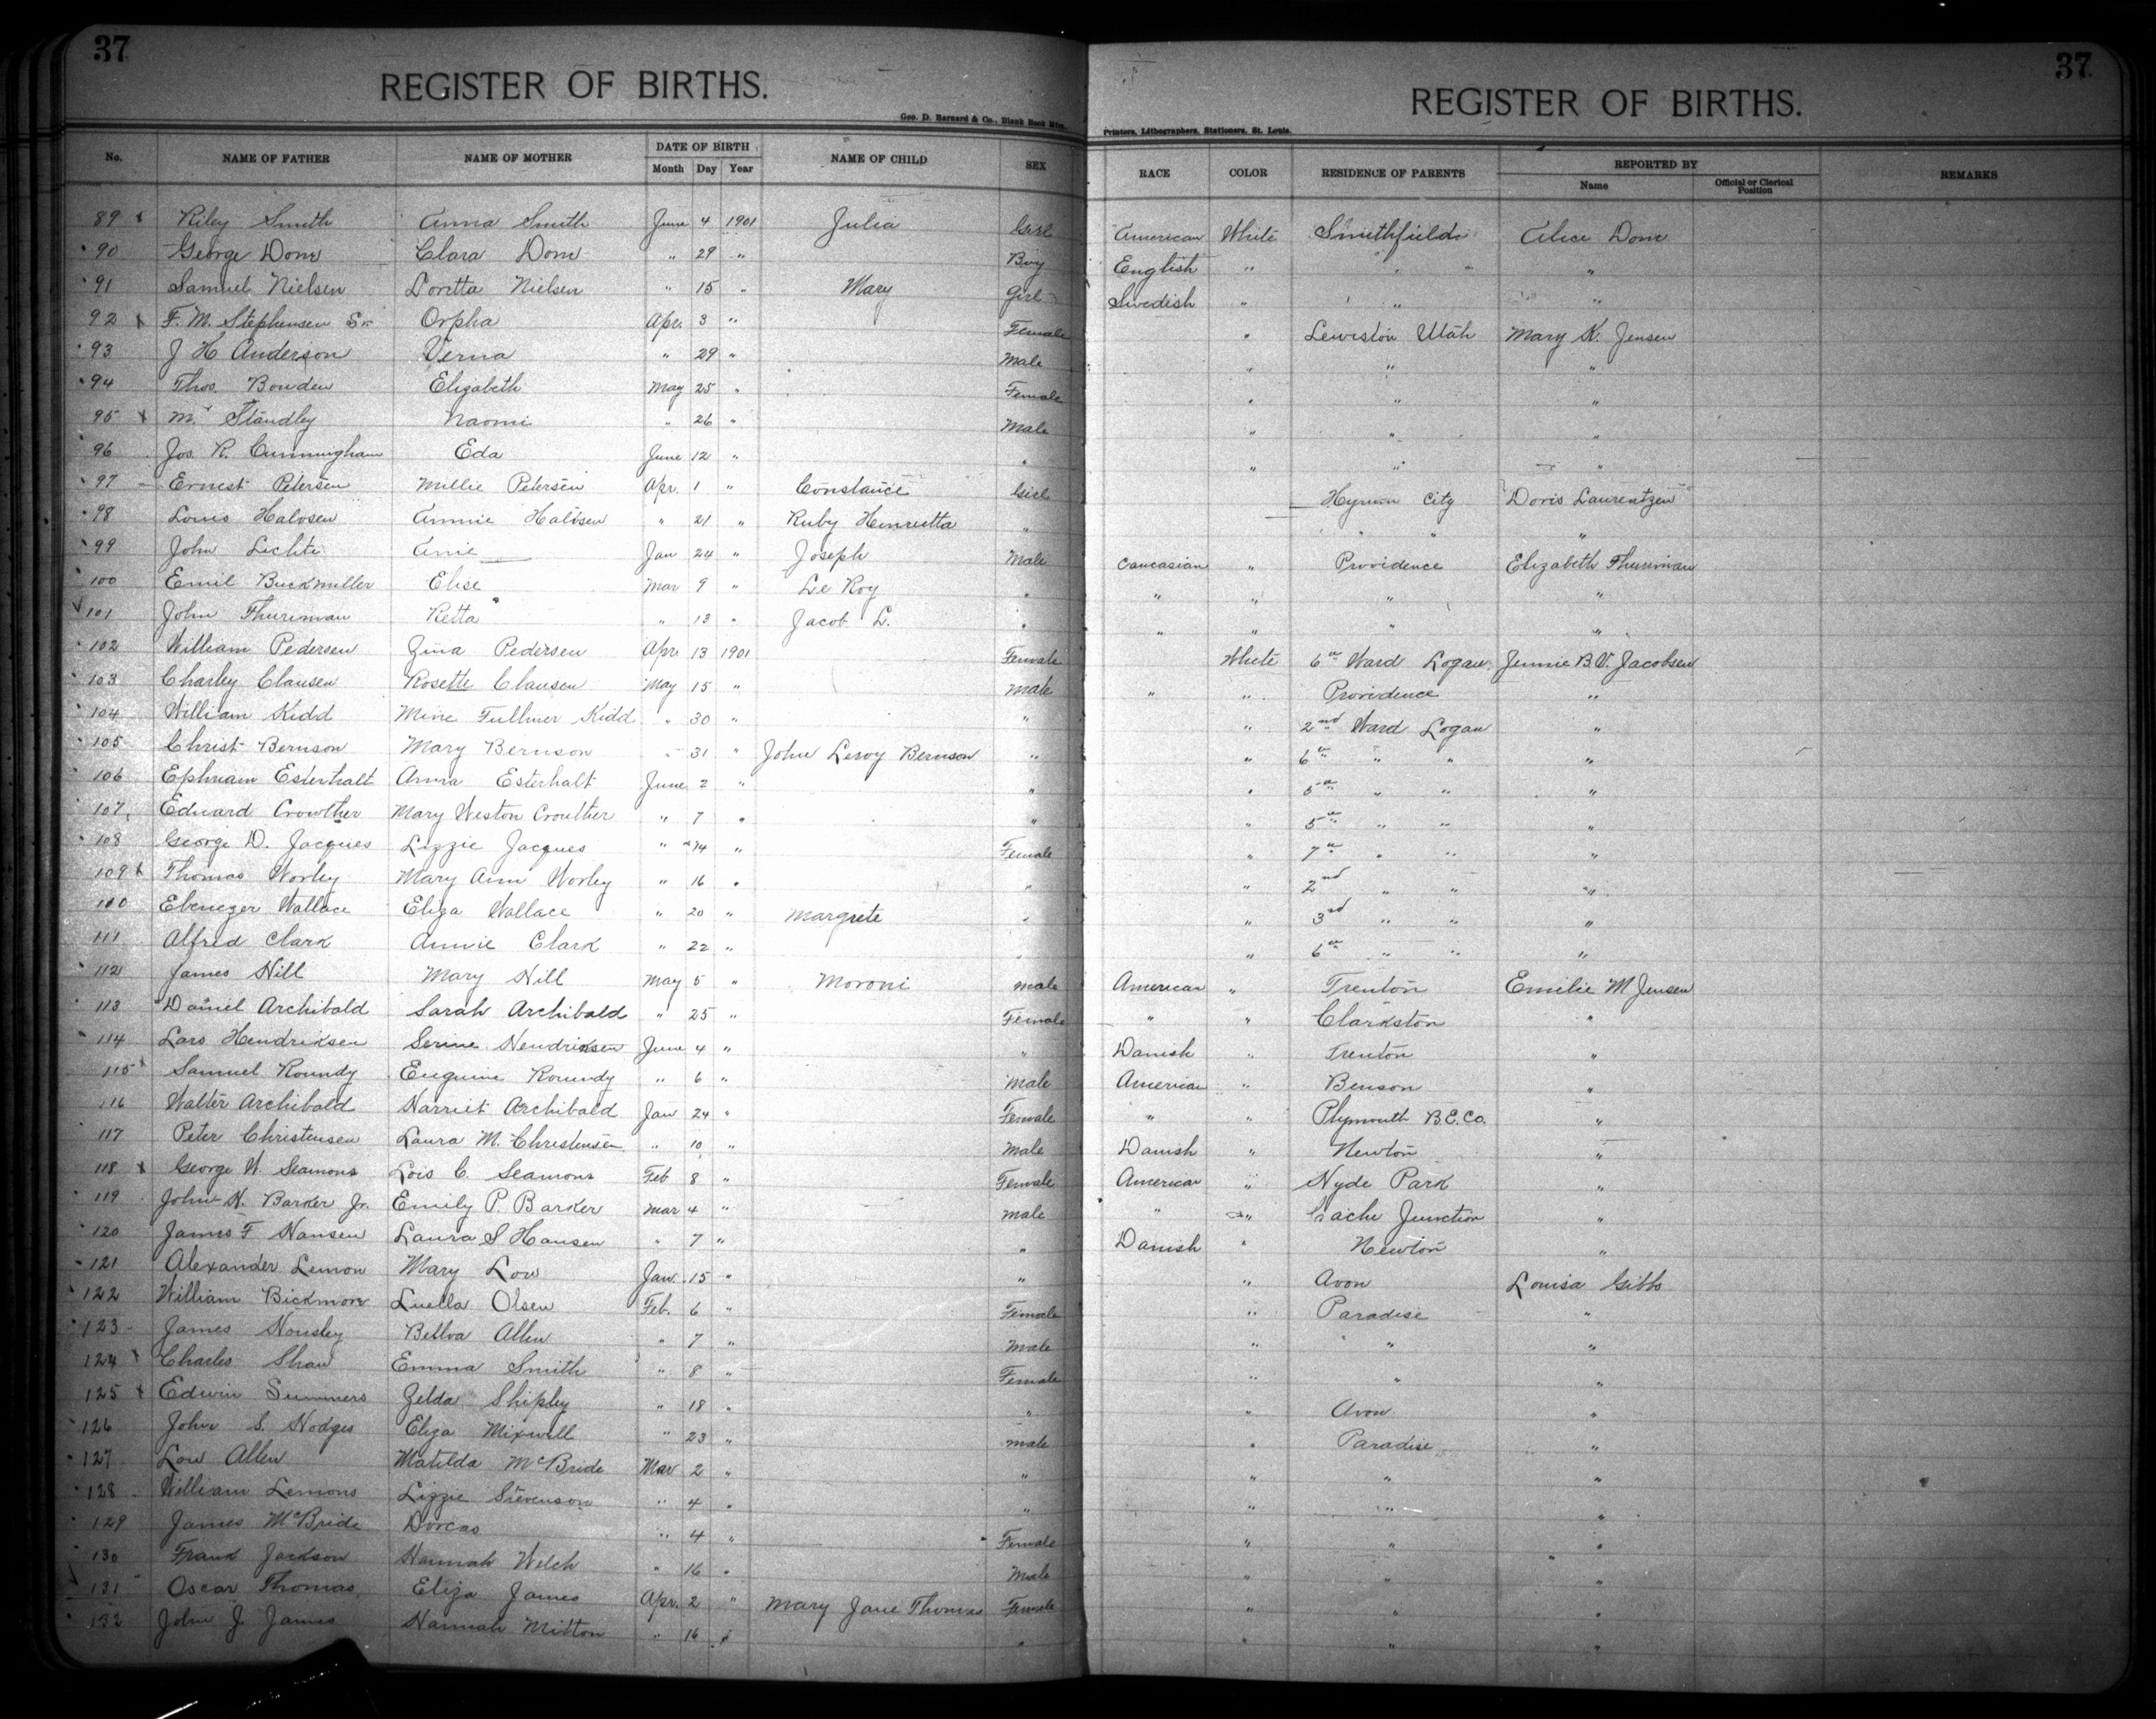 37 37
REGISTER OF BIRTHS. REGISTER OF BIRTHS.
Geo. D. Barnard & Co., Blank Book Mfrs. Printers, Lithographers, Stationers, St. Louis.
No. NAME OF FATHER NAME OF MOTHER DATE OF BIRTH Month Day Year NAME OF CHILD SEX RACE COLOR RESIDENCE OF PARENTS REPORTED BY Name Official or Clerical Position REMARKS
89 x Riley Smith Anna Smith June 4 1901 Julia Girl American White Smithfield Alice Dome
90 George Dome Clara Dome " 29 " Boy English " " "
91 Samuel Nielsen Loretta Nielsen " 15 " Mary Girl Swedish " " "
92 x F. M. Stephensen Sr. Orpha Apr. 3 " Female " Lewiston Utah Mary K. Jensen
93 J H Anderson Verna " 29 " Male " " "
94 Thos. Bowden Elizabeth May 25 " Female " " "
95 x M. Standley Naomi " 26 " Male " " "
96 Jos. R. Cunningham Eda June 12 " " " " "
97 Ernest Petersen Millie Petersen Apr. 1 " Constance Girl Hyrum City Doris Laurentzen
98 Louis Halvsen Annie Halvsen " 21 " Ruby Henrietta " " " "
99 John Lichte Anie Jan 24 " Joseph Male Caucasian " Providence Elizabeth Thuriman
100 Emil Buckmiller Elise Mar 9 " Le Roy " " " " "
101 John Thurimau Retta " 13 " Jacob L. " " " " "
102 William Pedersen Zina Pedersen Apr. 13 1901 Female White 6th Ward Logan Jennie B.V. Jacobsen
103 Charley Clausen Rosette Clausen May 15 " Male " " Providence "
104 William Kidd Mine Fullmer Kidd " 30 " " " 2nd Ward Logan "
105 Christ Bernson Mary Bernson " 31 " John Leroy Bernson " " 6th " " "
106 Ephriam Esterhalt Anna Esterhalt June 2 " " " 5th " " "
107 Edward Crowther Mary Weston Crouther " 7 " " " 5th " " "
108 George D. Jacques Lizzie Jacques " 14 " Female " 7th " " "
109 x Thomas Worley Mary Ann Worley " 16 " " " 2nd " " "
110 Ebenezer Wallace Eliza Wallace " 20 " Margrete " " 3rd " " "
111 Alfred Clark Annie Clark " 22 " " " 6th " " "
112 James Hill Mary Hill May 5 " Moroni Male American " Trenton Emilie M Jensen
113 Daniel Archibald Sarah Archibald " 25 " Female " " Clarkston "
114 Lars Hendriksen Serine Hendriksen June 4 " " Danish " Trenton "
115 x Samuel Roundy Euguine Roundy " 6 " Male American " Benson "
116 Walter Archibald Harriet Archibald Jan 24 " Female " " Plymouth B.E.Co. "
117 Peter Christensen Laura M. Christensen " 10 " Male Danish " Newton "
118 x George W. Seamons Lois C. Seamons Feb 8 " Female American " Hyde Park "
119 John H. Barker Jr. Emily P. Barker Mar 4 " male " " Cache Junction "
120 James F Hansen Laura S Hansen " 7 " " Danish " Newton "
121 Alexander Lemon Mary Low Jan. 15 " " " Avon Louisa Gibbs
122 William Bickmore Luella Olsen Feb. 6 " Female " Paradise "
123 James Housley Bellva Allen " 7 " Male " " "
124 x Charles Shaw Emma Smith " 8 " Female " " "
125 x Edwin Summers Zelda Shipley " 18 " " " Avon "
126 John S. Hodges Eliza Mixwell " 23 " male " Paradise "
127 Low Allen Matilda McBride Mar 2 " " " " "
128 William Lemons Lizzie Stevenson " 4 " " " " "
129 James McBride Dorcas " 4 " Female " " "
130 Frank Jackson Hannah Welch " 16 " Male " " "
131 Oscar Thomas Eliza James Apr. 2 " Mary Jane Thomas Female " " "
132 John J. James Hannah Mitton " 16 " " " " "